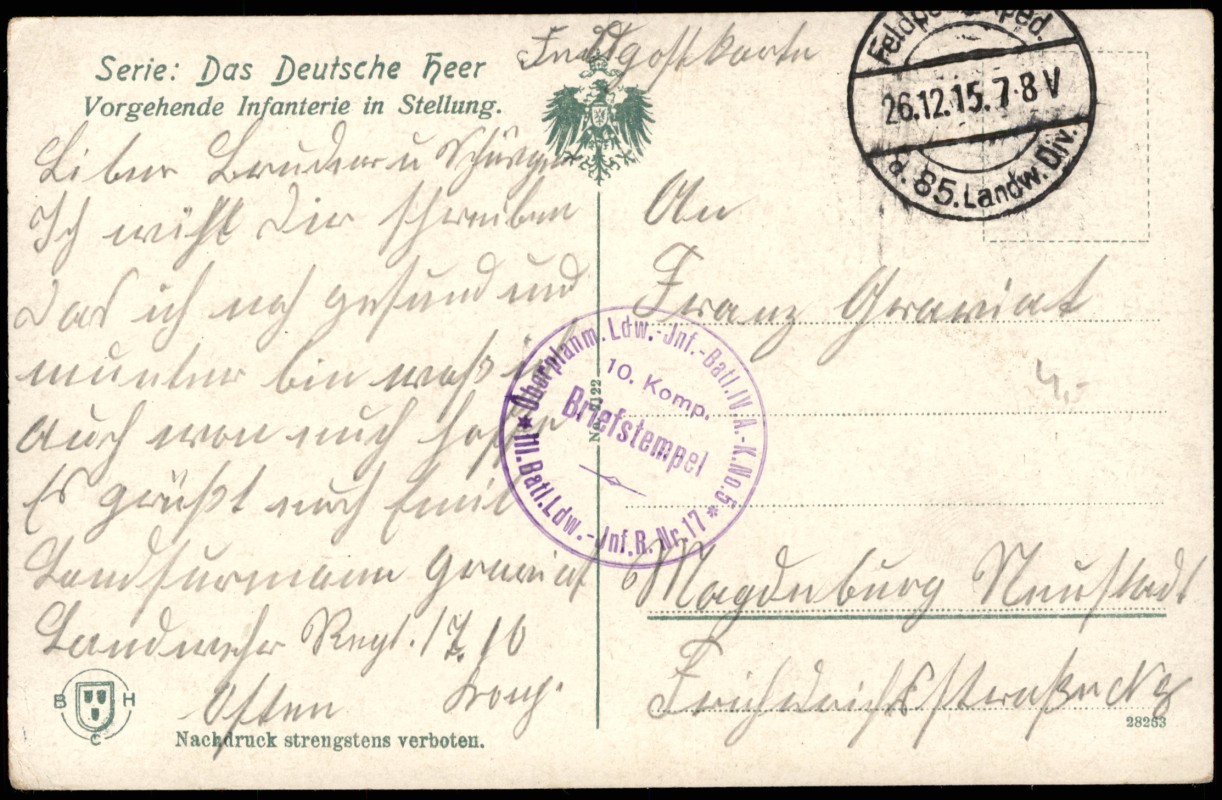 Feldpostkarte
Serie: Das Deutsche Heer
Vorgehende Infanterie in Stellung.
Feldpost Exped.
26.12.15. 7-8 V
d. 85. Landw. Div.
Liber Bruder u
Ich wihl Dir schreiben
Das ich noch gesund und
munter bin waß ich
Auch von euch hoffe
Es grüßt euch Emil
Landsurmann Grawiat
Landwehr Regt. 17. 10
Komp.
Osten
An
Franz Grawiat
Magdeburg Neustadt
Friedrichsstraße No 8
Oberplanm. Ldw.-Inf.-Batl. IV. A.-K. No. 5 *
III. Batl. Ldw.-Inf. R. Nr. 17 *
10. Komp.
Briefstempel
B H C
Nachdruck strengstens verboten.
28263